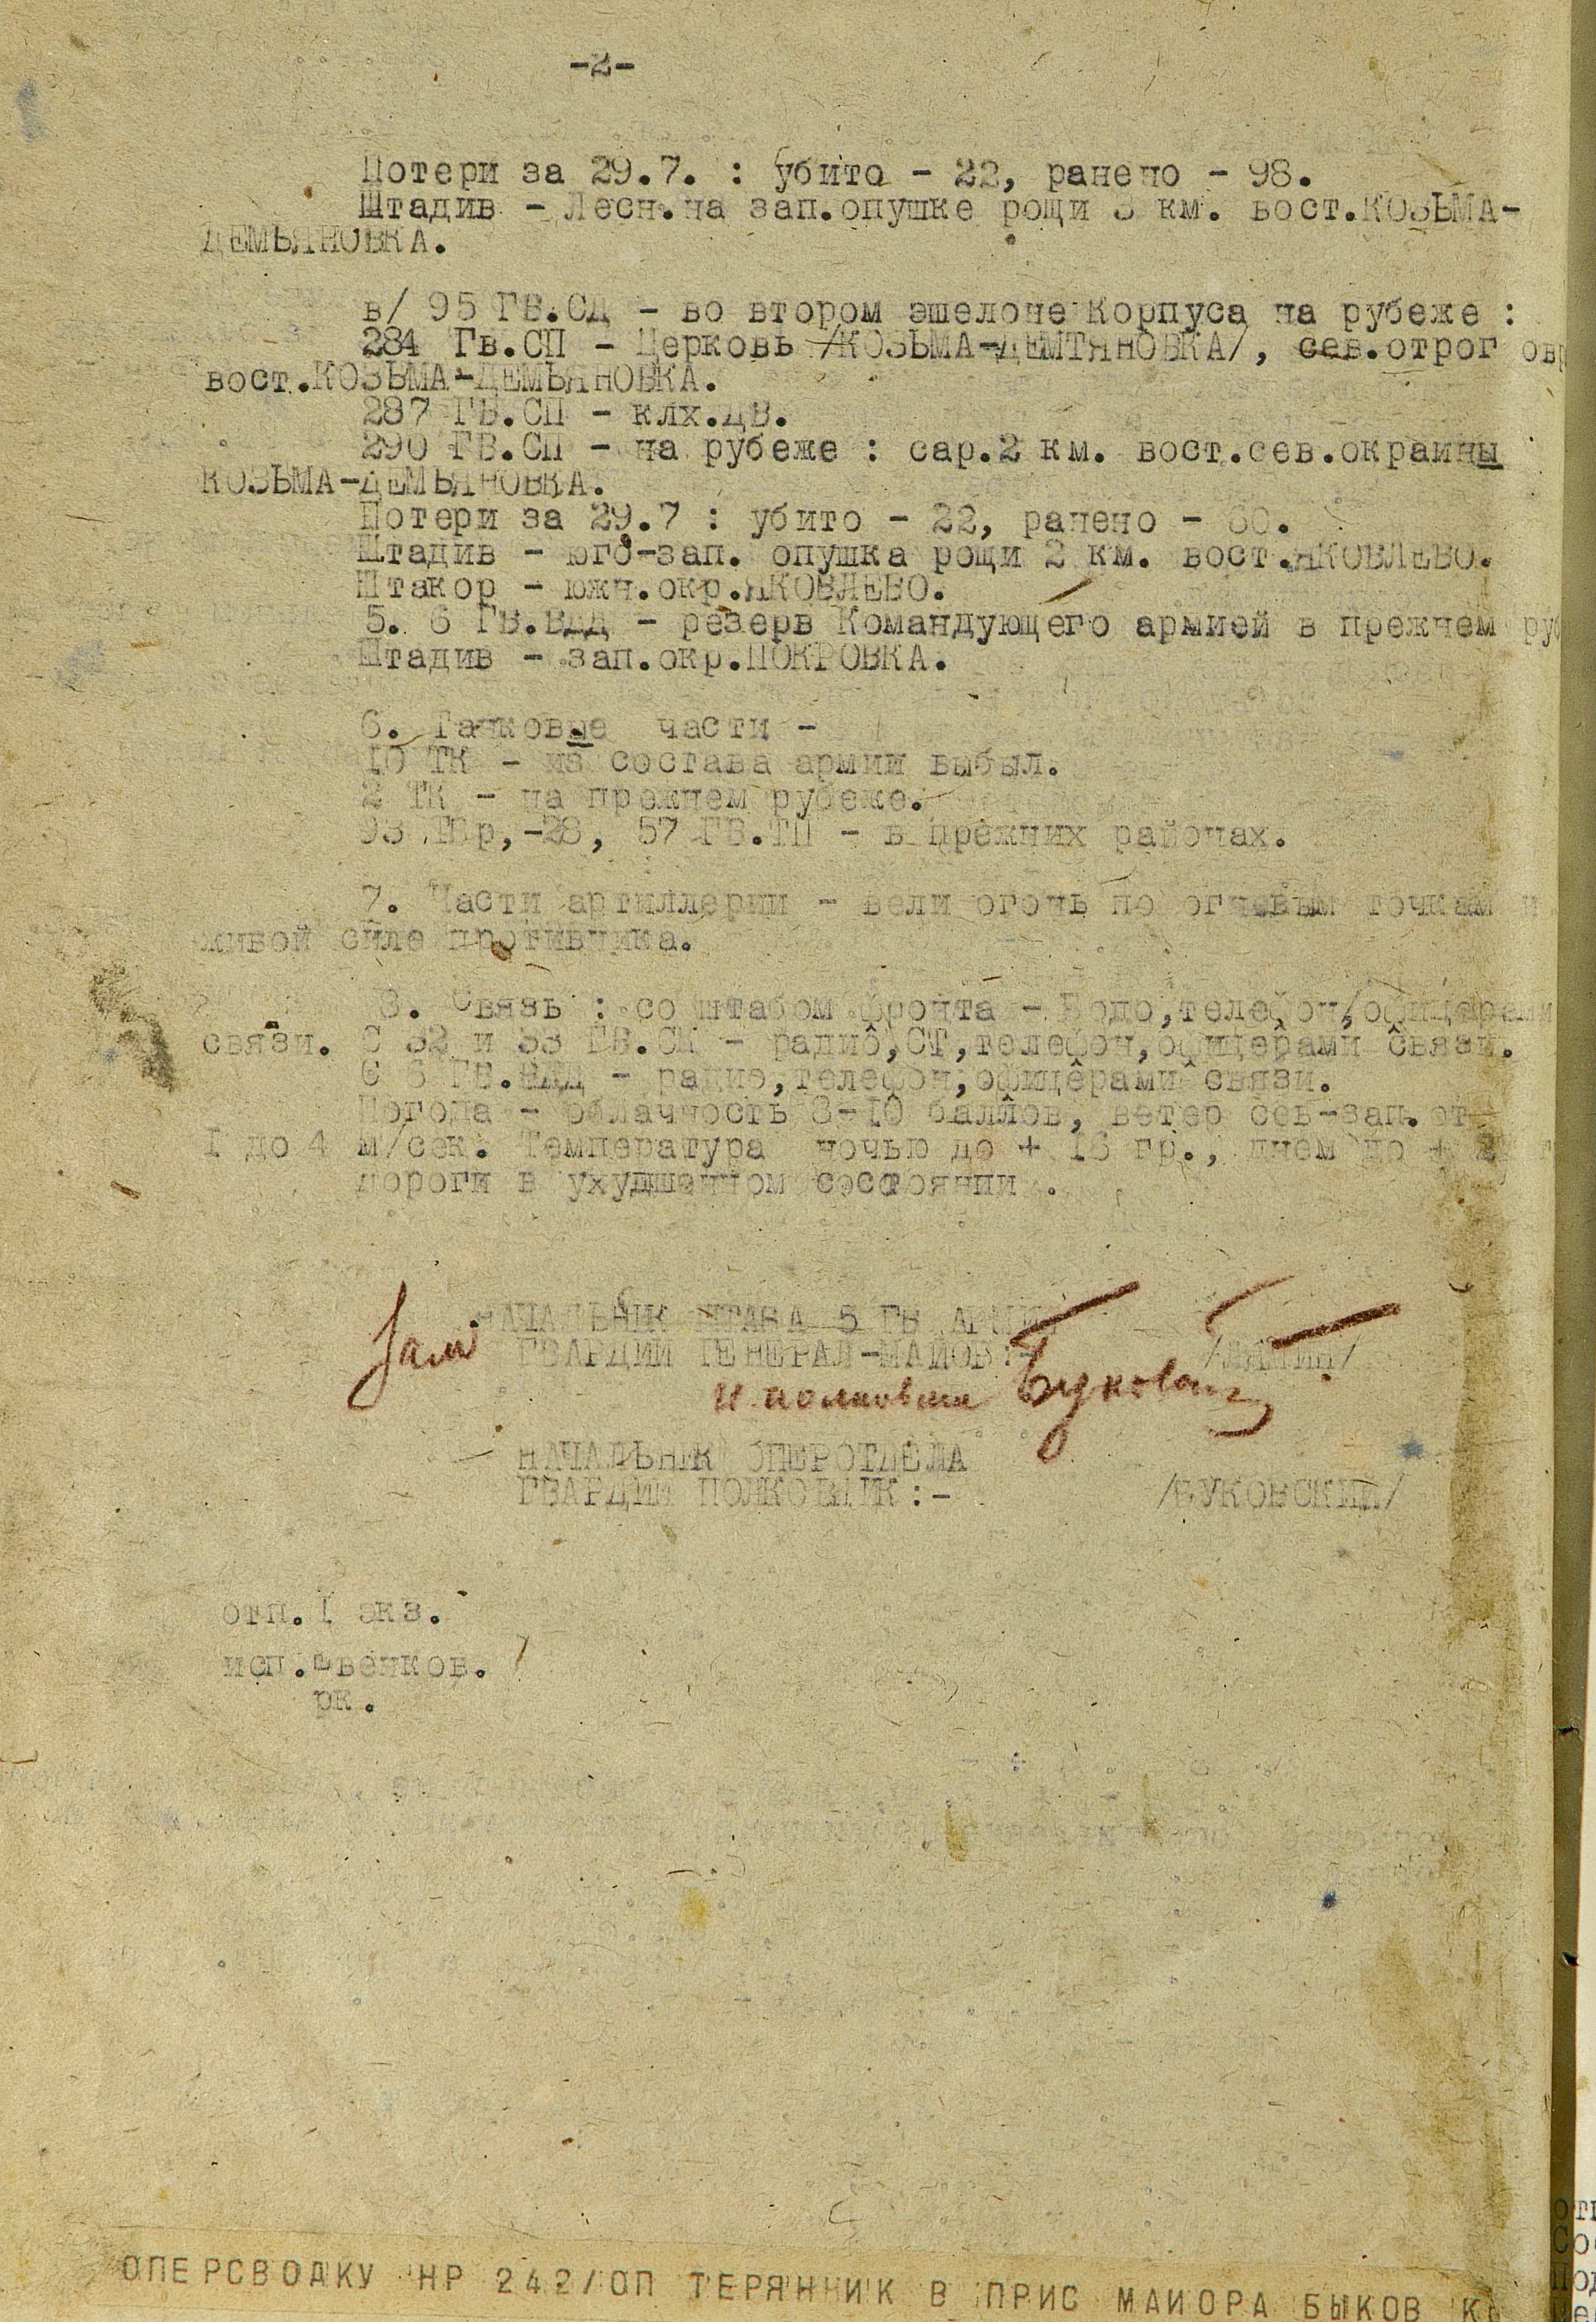 -2-
Потери за 29.7. : убито - 22, ранено - 98.
Штадив - Лесн.на зап.опушке рощи 3 км. вост.КОЗЬМА-
ДЕМЬЯНОВКА.
в/ 95 ГВ.СД - во втором эшелоне Корпуса на рубеже :
284 Гв.СП - Церковь /КОЗЬМА-ДЕМТЯНОВКА/, сев.отрог овр
вост.КОЗЬМА-ДЕМЬЯНОВКА.
287 ГВ.СП - клх.ДВ.
290 ГВ.СП - на рубеже : сар.2 км. вост.сев.окраины
КОЗЬМА-ДЕМЬЯНОВКА.
Потери за 29.7 : убито - 22, ранено - 60.
Штадив - юго-зап. опушка рощи 2 км. вост.ЯКОВЛЕВО.
Штакор - южн.окр.ЯКОВЛЕВО.
5. 6 ГВ.ВДД - резерв Командующего армией в прежнем ру
Штадив - зап.окр.ПОКРОВКА.
6. Танковые части -
10 ТК - из состава армии выбыл.
2 ТК - на прежнем рубеже.
93 ТБр,-28, 57 ГВ.ТП - в прежних районах.
7. Части артиллерии - вели огонь по огневым точкам и
живой силе противника.
8. Связь : со штабом фронта - Бодо,телефон,офицерами
связи. С 32 и 33 ГВ.СК - радио,СТ,телефон,офицерами связи.
С 6 ГВ.ВДД - радио,телефон,офицерами связи.
Погода - облачность 8-10 баллов, ветер сев-зап. от
I до 4 м/сек. Температура ночью до + 16 гр., днем до +
дороги в ухудшенном состоянии .
НАЧАЛЬНИК ШТАБА 5 ГВ АРМИИ
Зам ГВАРДИИ ГЕНЕРАЛ-МАЙОР:- /ЛЯМИН/
НАЧАЛЬНИК ОПЕРОТДЕЛА
ГВАРДИИ ПОЛКОВНИК:- /БУКОВСКИЙ/
отп.I экз.
исп.Швенков.
рк.
ОПЕРСВОДКУ НР 242/ОП ТЕРЯННИК В ПРИС МАИОРА БЫКОВ К